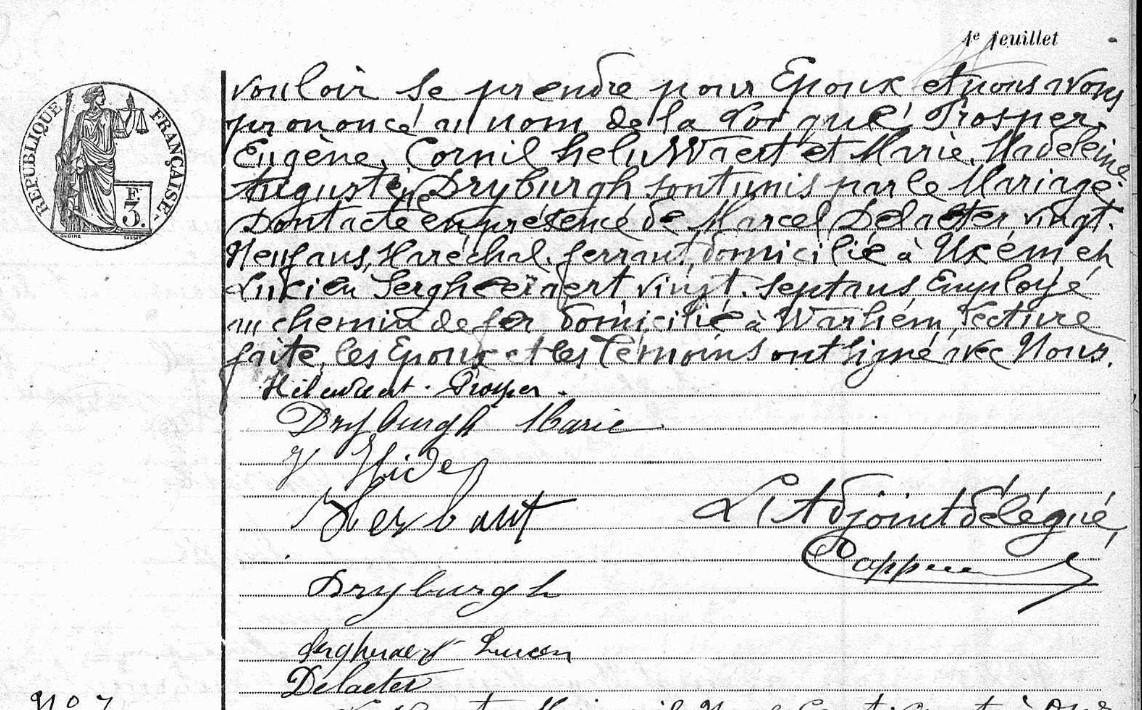 4e feuillet
RÉPUBLIQUE FRANÇAISE
F
3.
vouloir se prendre pour Epoux et nous avons
prononcé au nom de la Loi que Prosper,
Eugène, Cornil heluWaert et Marie, Madeleine
Augustine Dryburgh sont unis par le Mariage.
Dont acte en présence de Marcel Delaeter vingt.
Neuf ans, Maréchal. ferrant, domicilié à Uxém et
Lucien Sergheraert vingt. sept ans Employé
au chemin de fer, domicilié à Warhem, lecture
faite, les Epoux et les Témoins ont signé avec Nous.
Prosper.
Dryburgh Marie
L'Adjoint délégué,
Dryburgh
Lucien
Delaeter
No 7